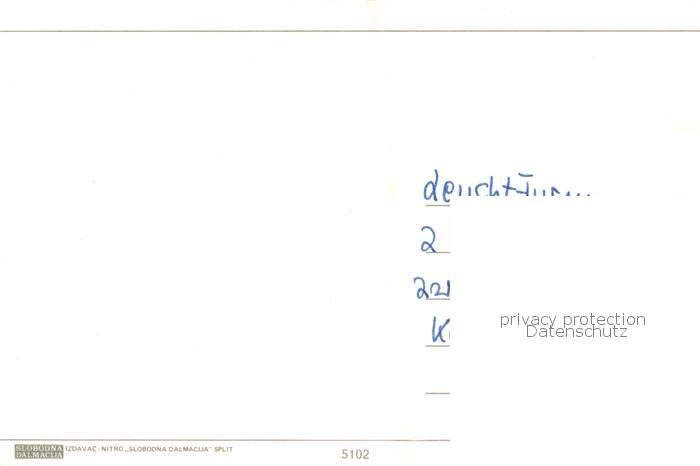 Leuchtturm
2
privacy protection
Datenschutz
SLOBODNA
DALMACIJA
IZDAVAČ: NITRO „SLOBODNA DALMACIJA" SPLIT
5102